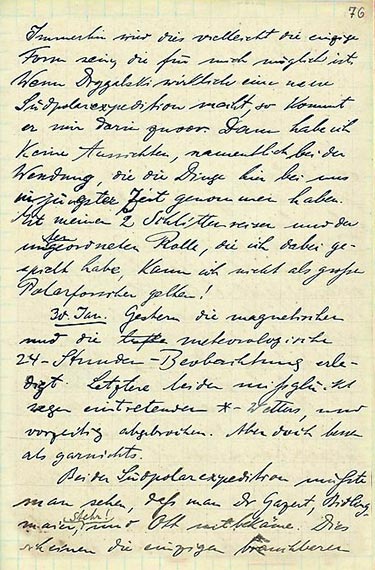 76
Immerhin wird dies vielleicht die einzige
Form sein, die für mich möglich ist.
Wenn Drygalski wirklich eine neue
Südpolarexpedition macht, so kommt
er mir darin zuvor. Dann habe ich
keine Aussichten, namentlich bei der
Wendung, die die Dinge hin bei uns
in jüngster Zeit genommen haben.
Mit meinen 2 Schlittenreisen und der
untergeordneten Rolle, die ich dabei ge-
spielt habe, kann ich nicht als große
Polarforscher gelten!
30. Jan. Gestern die magnetischen
und die meteorologische
24-Stunden-Beobachtung erle-
digt. Letztere leider missglückt
wegen eintretenden *-Wetters, und
vorzeitig abgebrochen. Aber doch besser
als garnichts.
Bei der Südpolarexpedition müsste
man sehen, dass man Dr Gazert, Bidling-
maier, Stehr! und Ott mitbekäme. Dies
scheinen die einzigen brauchbaren